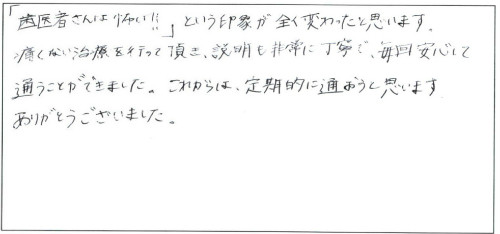 「歯医者さんは怖い!!」という印象が全く変わったと思います。
痛くない治療を行って頂き、説明も非常に丁寧で、毎回安心して
通うことができました。これからは、定期的に通おうと思います
ありがとうございました。